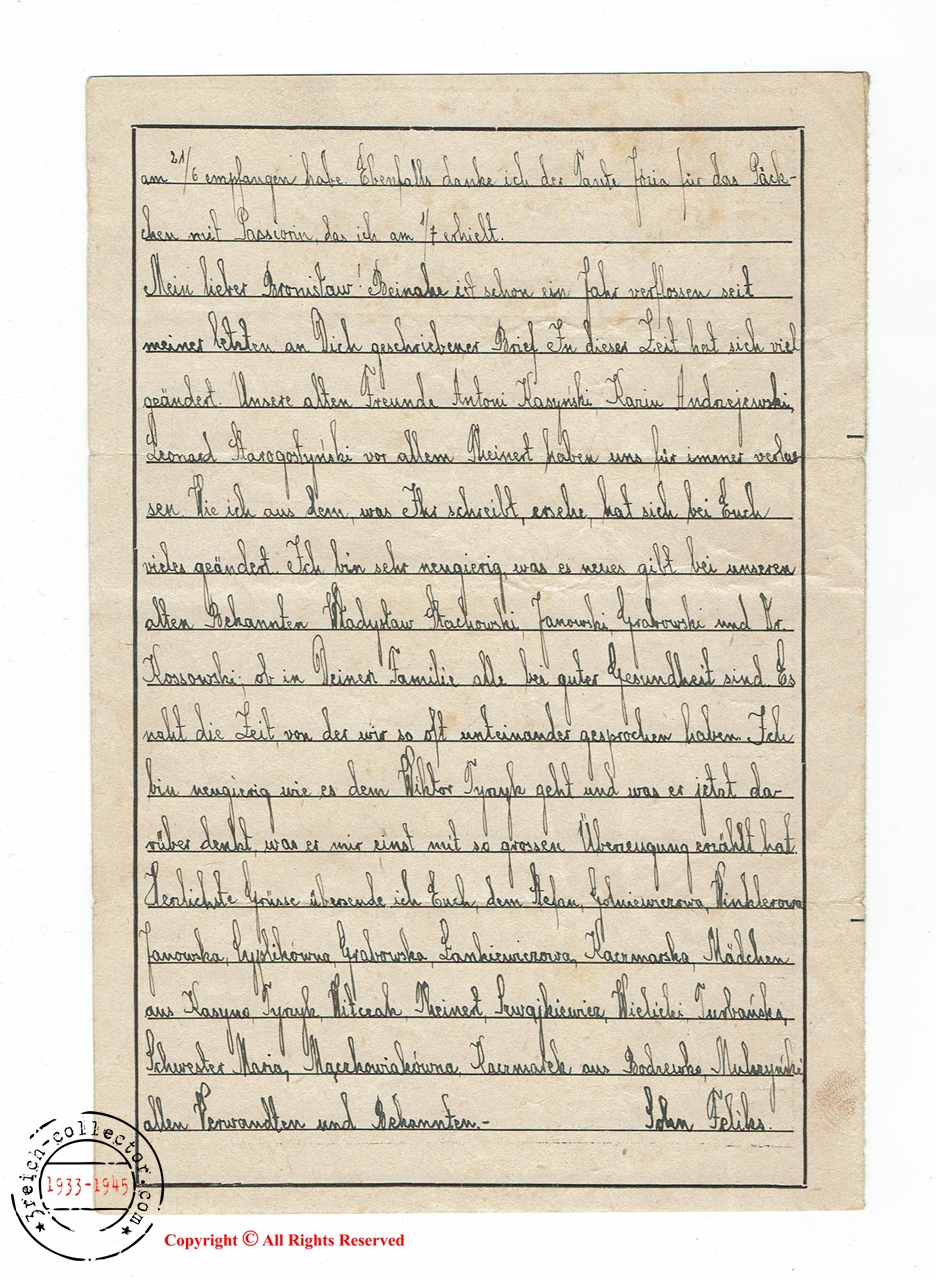 am 21/6 empfangen habe. Ebenfalls danke ich der Tante Józia für das Päck-
chen mit Passiorin, das ich am 1/7 erhielt.
Mein lieber Bronisław! Beinahe ist schon ein Jahr verflossen seit
meiner letzten an Dich geschriebener Brief. In dieser Zeit hat sich viel
geändert. Unsere alten Freunde Antoni Kasyński, Andrzejewski,
Leonard Starogostyński vor allem Rheinert haben uns für immer verlas-
sen. Wie ich aus dem, was Ihr schreibt, ersehe, hat sich bei Euch
vieles geändert. Ich bin sehr neugierig, was es neues gibt bei unseren
alten Bekannten Władysław Stachowski, Janowski, Grabowski und Dr.
Kossowski; ob in Deiner Familie alle bei guter Gesundheit sind. Es
naht die Zeit, von der wir so oft unteinander gesprochen haben. Ich
bin neugierig wie es dem Wiktor Tyrzyk geht und was er jetzt da-
rüber denkt, was er mir einst mit so grossen Überzeugung erzählt hat.
Herzlichste Grüsse übersende ich Euch, dem Stefan, Golniewiczowa, Winklerowa
Janowska, Cyplikówna, Grabowska, Łankiewiczowa, Kaczmarska, Mädchen
aus Kasyno, Tyrzyk, Witczak, Rheinert, Szwajkiewicz, Wielicki, Turbańska,
Schwester Maria, Mączkowiakówna, Kaczmarek aus Bodzewko, Mulczyński
allen Verwandten und Bekannten.- Sohn Feliks.
*3reich-collector.com*
1933-1945
Copyright © All Rights Reserved